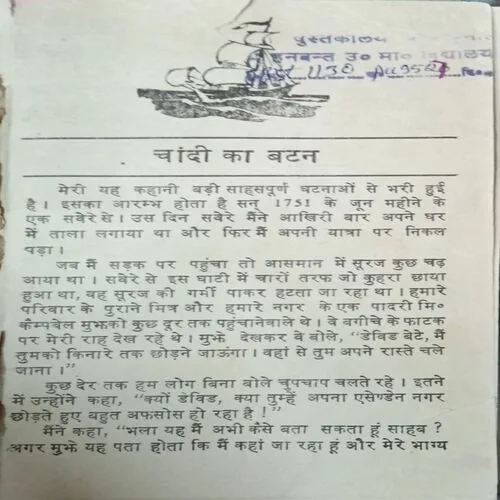 पुस्तकालय
उ० मा० विद्यालय
1130
चांदी का बटन
मेरी यह कहानी बड़ी साहसपूर्ण घटनाओं से भरी हुई
है। इसका आरम्भ होता है सन् 1751 के जून महीने के
एक सवेरे से। उस दिन सवेरे मैंने आखिरी बार अपने घर
में ताला लगाया था और फिर मैं अपनी यात्रा पर निकल
पड़ा।
जब मैं सड़क पर पहुंचा तो आसमान में सूरज कुछ चढ़
आया था। सवेरे से इस घाटी में चारों तरफ जो कुहरा छाया
हुआ था, वह सूरज की गर्मी पाकर हटता जा रहा था। हमारे
परिवार के पुराने मित्र और हमारे नगर के एक पादरी मि०
कैम्पबेल मुझको कुछ दूर तक पहुंचानेवाले थे। वे बगीचे के फाटक
पर मेरी राह देख रहे थे। मुझे देखकर वे बोले, “डेविड बेटे, मैं
तुमको किनारे तक छोड़ने जाऊंगा। वहां से तुम अपने रास्ते चले
जाना।”
कुछ देर तक हम लोग बिना बोले चुपचाप चलते रहे। इतने
में उन्होंने कहा, “क्यों डेविड, क्या तुम्हें अपना एसेण्डेन नगर
छोड़ते हुए बहुत अफसोस हो रहा है!”
मैंने कहा, “भला यह मैं अभी कैसे बता सकता हूं साहब?
अगर मुझे यह पता होता कि मैं कहां जा रहा हूं और मेरे भाग्य